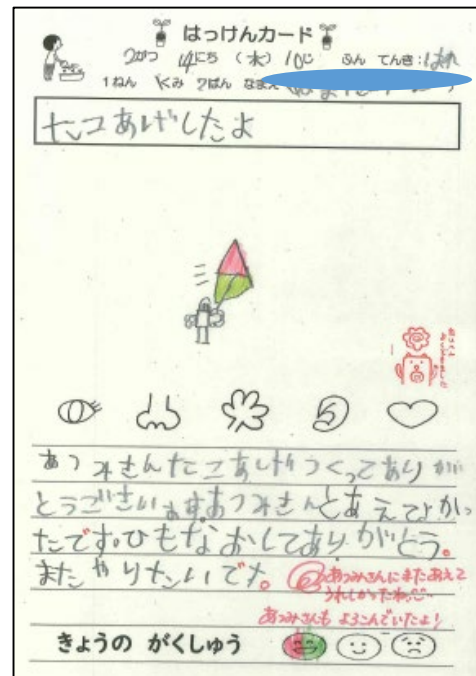 はっけんカード
2がつ 14にち (水) 10じ ふん てんき:はれ
1ねん くみ 2ばん なまえ
たこあげしたよ
あつみさんたこあげつくってありが
とうございます。あつみさんとあえてよかっ
たです。ひもなおしてありがとう。
またやりたいです。
あつみさんにまたあえて
うれしかったね。
あつみさんも よろこんでいたよ!
きょうの がくしゅう